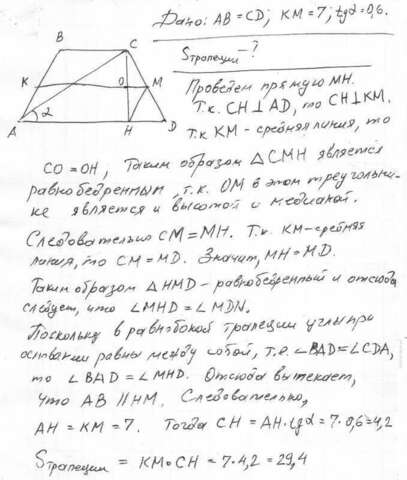 Дано: AB = CD; KM = 7; tgα = 0,6.
B
C
Sтрапеции - ?
K
O
M
A
α
H
D
Проведем прямую MH.
Т.к. CH ⊥ AD, то CH ⊥ KM.
т.к KM - средняя линия, то
CO = OH, Таким образом △CMH является
равнобедренным, т.к. OM в этом треугольни-
ке является и высотой и медианой.
Следовательно CM = MH. Т.к. KM - средняя
линия, то CM = MD. Значит, MH = MD.
Таким образом △HMD - равнобедренный и отсюда
следует, что ∠MHD = ∠MDN.
Поскольку в равнобокой трапеции углы при
основании равны между собой, т.е. ∠BAD = ∠CDA,
то ∠BAD = ∠MHD. Отсюда вытекает,
что AB ∥ HM. Следовательно,
AH = KM = 7. Тогда CH = AH·tgα = 7·0,6 = 4,2
Sтрапеции = KM·CH = 7·4,2 = 29,4